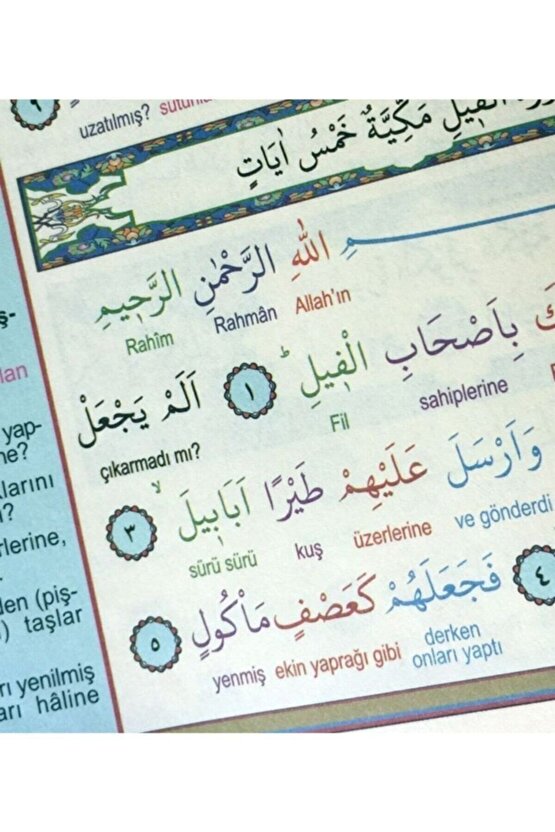 ٩
uzatılmış?
الْفٖيلِ مَكِّيَّةٌ خَمْسُ اٰيَاتٍ
اللهِ الرَّحْمٰنِ الرَّحٖيمِ
Allah'ın Rahmân Rahîm
بِاَصْحَابِ الْفٖيلِ ﴿١﴾ اَلَمْ يَجْعَلْ
sahiplerine Fil çıkarmadı mı?
وَاَرْسَلَ عَلَيْهِمْ طَيْرًا اَبَابٖيلَ ﴿٣﴾
ve gönderdi üzerlerine kuş sürü sürü
﴿٤﴾ فَجَعَلَهُمْ كَعَصْفٍ مَأْكُولٍ ﴿٥﴾
derken onları yaptı ekin yaprağı gibi yenmiş
yap-
larını
rlerine,
den (piş-
taşlar
rı yenilmiş
arı hâline